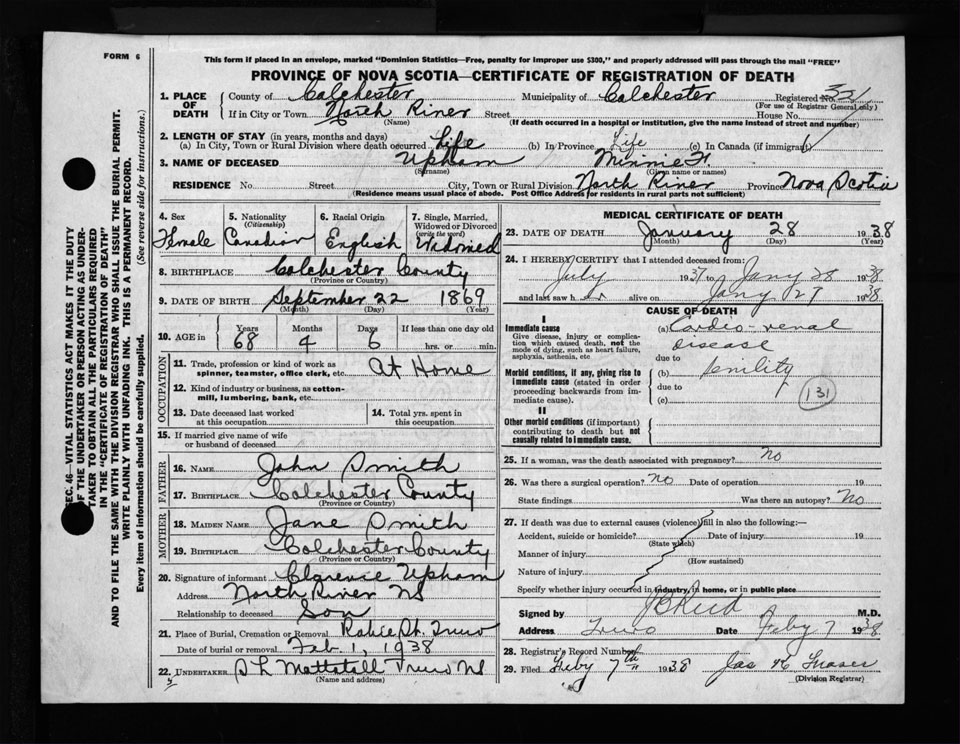 FORM 6
This form if placed in an envelope, marked "Dominion Statistics—Free, penalty for improper use $300," and properly addressed will pass through the mail "FREE"
PROVINCE OF NOVA SCOTIA—CERTIFICATE OF REGISTRATION OF DEATH
1. PLACE OF DEATH County of Colchester Municipality of Colchester Registered No.
(For use of Registrar General only)
If in City or Town North River Street House No.
(Name) (If death occurred in a hospital or institution, give the name instead of street and number)
2. LENGTH OF STAY (in years, months and days)
(a) In City, Town or Rural Division where death occurred Life (b) In Province Life (c) In Canada (if immigrant)
3. NAME OF DECEASED Upham Minnie H.
(Surname) (Given name or names)
RESIDENCE No. Street City, Town or Rural Division North River Province Nova Scotia
(Residence means usual place of abode. Post Office Address for residents in rural parts not sufficient)
4. Sex Female
5. Nationality (Citizenship) Canadian
6. Racial Origin English
7. Single, Married, Widowed or Divorced (write the word) Widowed
8. BIRTHPLACE Colchester County
(Province or Country)
9. DATE OF BIRTH September 22 1869
(Month) (Day) (Year)
10. AGE in Years 68 Months 4 Days 6 If less than one day old hrs. or min.
OCCUPATION
11. Trade, profession or kind of work as spinner, teamster, office clerk, etc. At Home
12. Kind of industry or business, as cotton-mill, lumbering, bank, etc.
13. Date deceased last worked at this occupation
14. Total yrs. spent in this occupation
15. If married give name of wife or husband of deceased
FATHER
16. NAME John Smith
17. BIRTHPLACE Colchester County
(Province or Country)
MOTHER
18. MAIDEN NAME Jane Smith
19. BIRTHPLACE Colchester County
(Province or Country)
20. Signature of informant Clarence Upham
Address North River NS
Relationship to deceased Son
21. Place of Burial, Cremation or Removal Robie St. Truro
Date of burial or removal Feb. 1, 1938
22. UNDERTAKER Mattatall Truro NS
(Name and address)
MEDICAL CERTIFICATE OF DEATH
23. DATE OF DEATH January 28 1938
(Month) (Day) (Year)
24. I HEREBY CERTIFY that I attended deceased from:
July 1937 to Jany 28 1938
and last saw her alive on Jany 27 1938
CAUSE OF DEATH
I
Immediate cause
Give disease, injury or complication which caused death, not the mode of dying, such as heart failure, asphyxia, asthenia, etc
(a) Cardio-renal disease
due to
Morbid conditions, if any, giving rise to immediate cause (stated in order proceeding backwards from immediate cause).
(b) Senility
due to
(c)
131
II
Other morbid conditions (if important) contributing to death but not causally related to immediate cause.
25. If a woman, was the death associated with pregnancy? No
26. Was there a surgical operation? No Date of operation 19
State findings Was there an autopsy? No
27. If death was due to external causes (violence) fill in also the following:—
Accident, suicide or homicide? Date of injury 19
(State which)
Manner of injury
(How sustained)
Nature of injury
Specify whether injury occurred in industry, in home, or in public place
Signed by Reid M.D.
Address Truro Date Feby 7 1938
28. Registrar's Record Number
29. Filed Feby 7th 1938 Jas Fraser
(Division Registrar)
SEC. 46—VITAL STATISTICS ACT MAKES IT THE DUTY
OF THE UNDERTAKER OR PERSON ACTING AS UNDERTAKER TO OBTAIN ALL THE PARTICULARS REQUIRED
IN THE "CERTIFICATE OF REGISTRATION OF DEATH"
AND TO FILE THE SAME WITH THE DIVISION REGISTRAR WHO SHALL ISSUE THE BURIAL PERMIT.
WRITE PLAINLY WITH UNFADING INK. THIS IS A PERMANENT RECORD.
Every item of information should be carefully supplied. (See reverse side for instructions.)